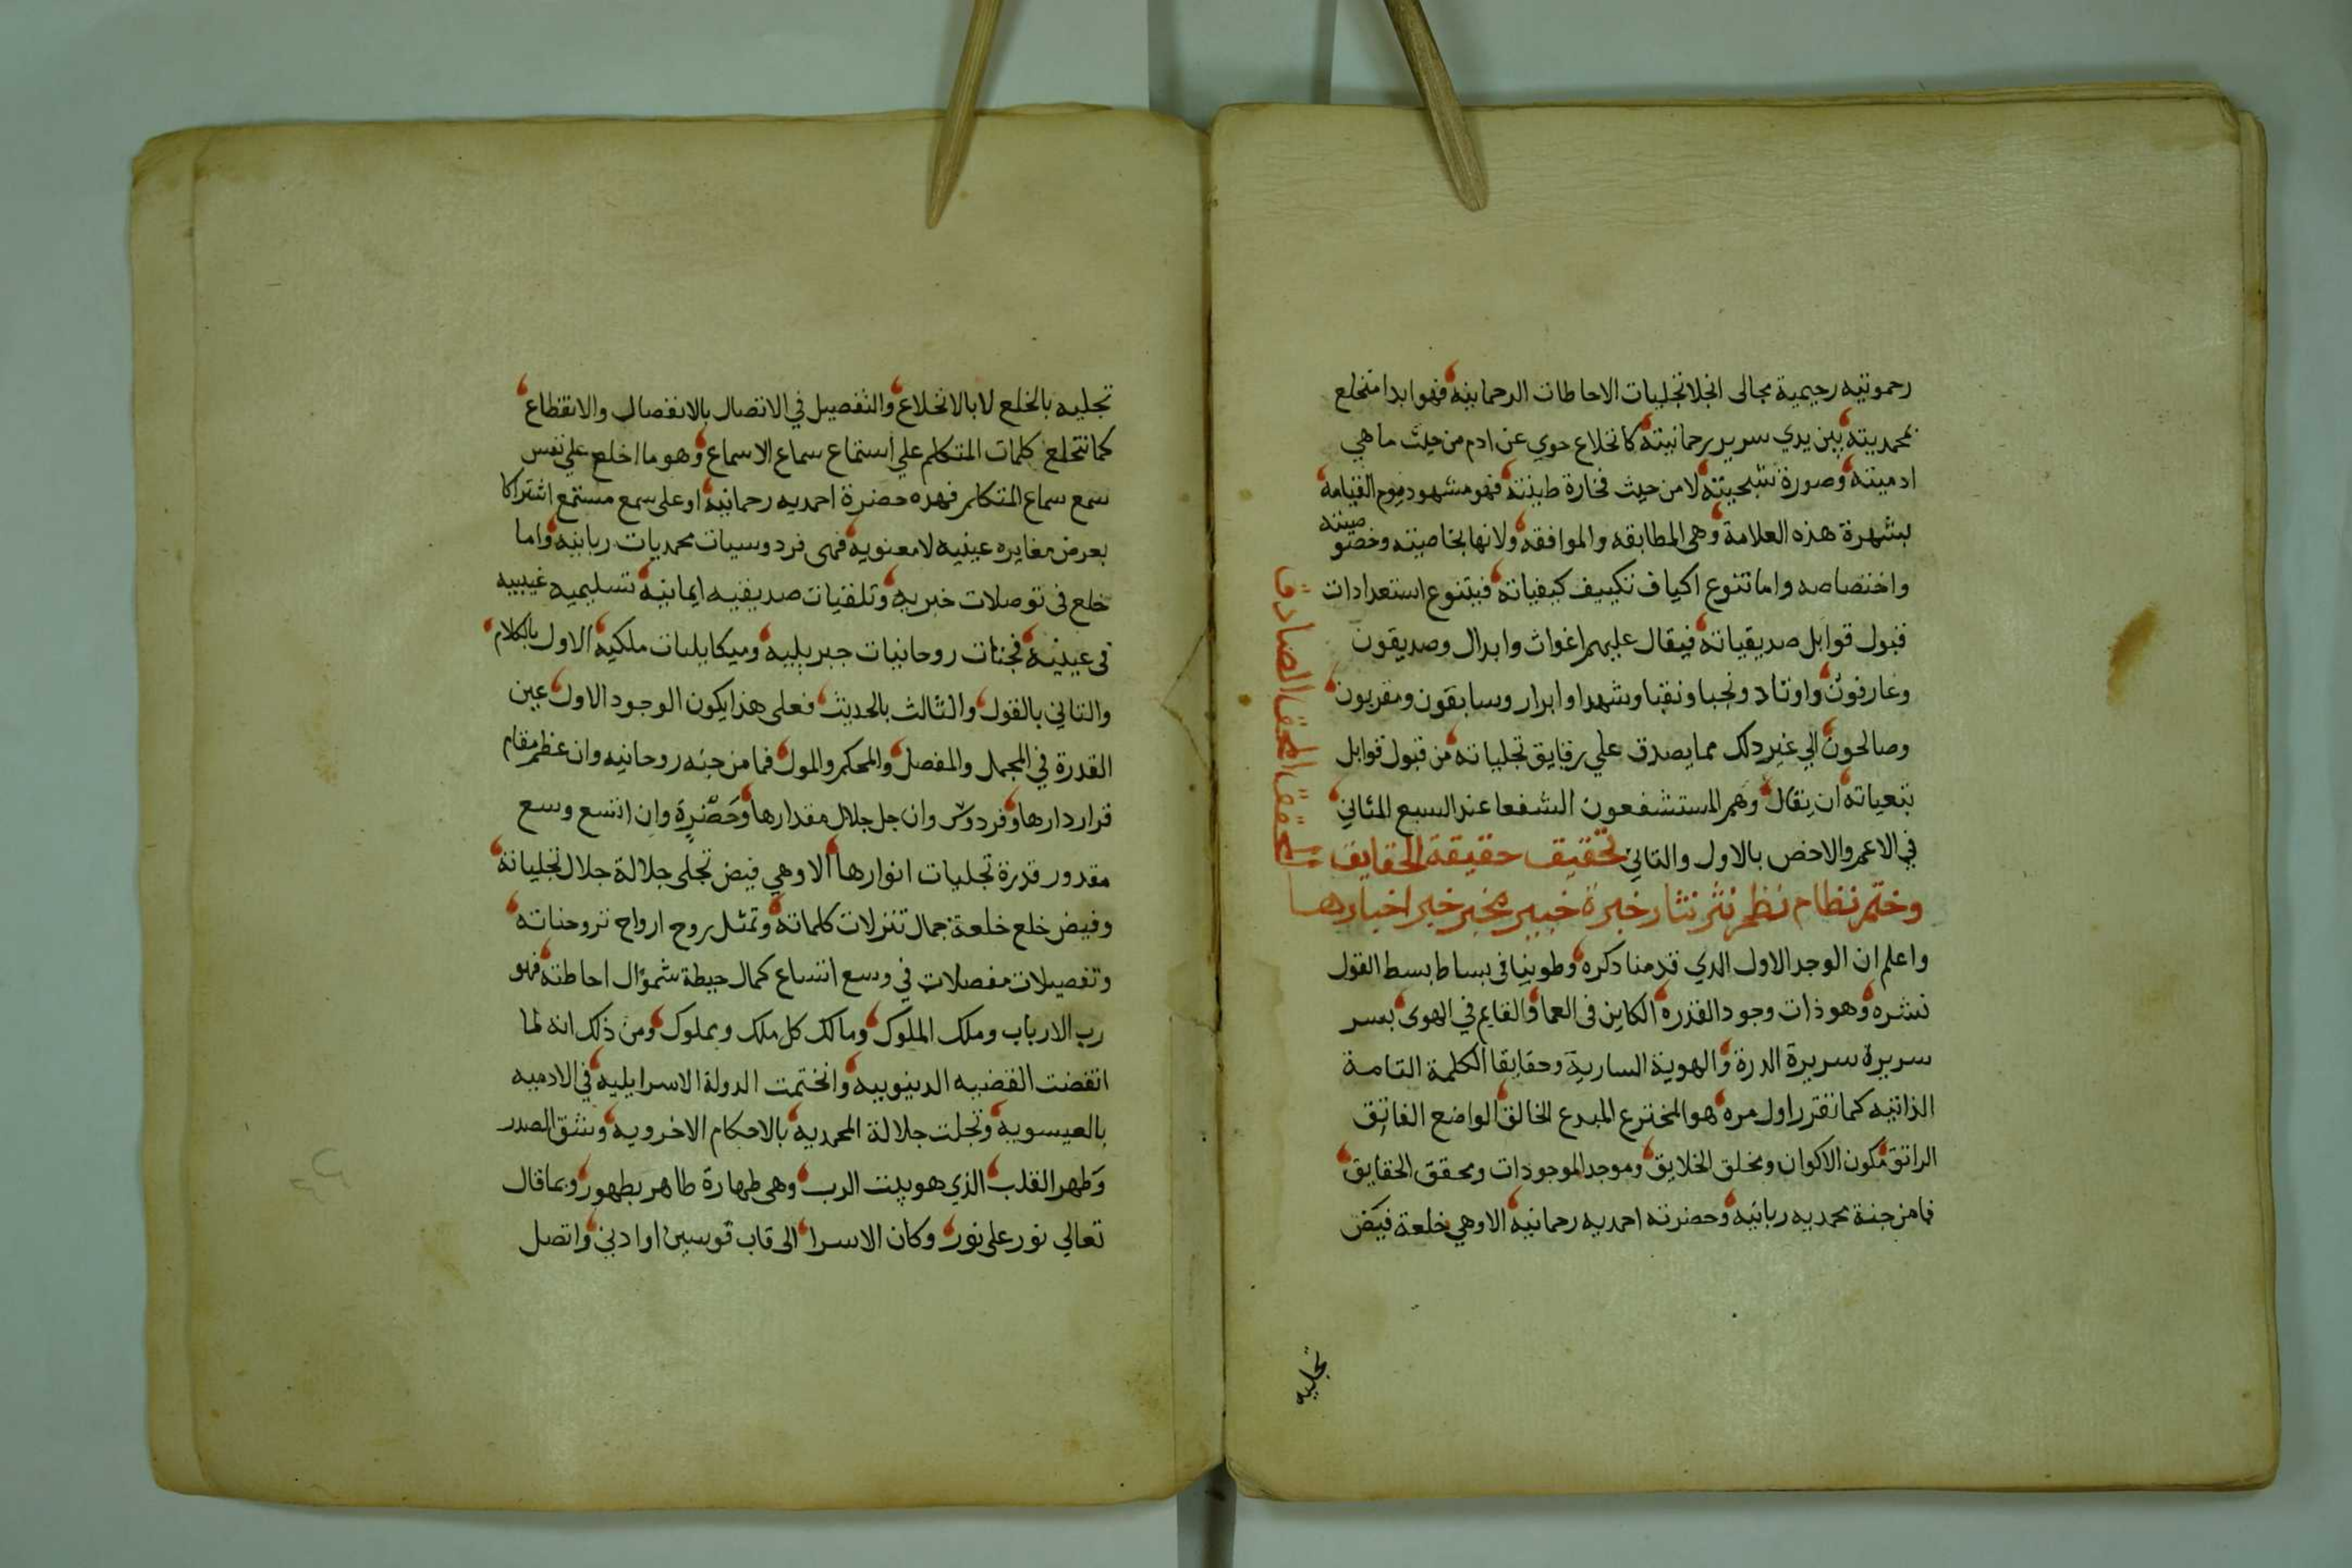 رحموتيه رحيمية مجالى انجلا تجليات الاحاطات الرحمانيه فهو ابدا متخلع
بمحمديته بين يدي سرير رحمانيته كانخلاع حوي عن ادم من حيث ما هي
ادميته وصورة شبحيته لا من حيث فخارة طينته فهو مشهود يوم القيامة
بشهرة هذه العلامة وهى المطابقه والموافقه ولانها بخاصيته وخصوصيته
واختصاصه واما تنوع اكياف تكييف كيفياته فبتنوع استعدادات
قبول قوابل صديقياته فيقال عليهم اغواث وابدال وصديقون
وعارفون واوتاد ونجبا ونقبا وشهدا وابرار وسابقون ومقربون
وصالحون الي غير دلك مما يصدق علي رقايق تجلياته من قبول قوابل
بتعياته ان يقال وهم المستشفعون الشفعا عند السبع المثاني
في الاعم والاخص بالاول والثاني تحقيق حقيقة الحقايق
المحقق الحق الصادق
وختم نظام نظم نثر نثار خبرة خبير مخبر خير اخبارها
واعلم ان الوجد الاول الدي قدمنا دكره وطوينا فى بساط بسط القول
نشره وهو ذات وجود القدرة الكاين فى العما والقايم في الهوى بسر
سريرة سريرة الدرة والهوية السارية وحقايقا الكلمة التامة
الذاتيه كما تقرر اول مره هو المخترع المبدع الخالق الواضع الفاتق
الراتق مكون الاكوان ومخلق الخلايق وموجد الموجودات ومحقق الحقايق
فما من جنة محمديه ربانيه وحضرته احمديه رحمانيه الا وهي خلعة فيض
تجليه
تجليه بالخلع لا بالانخلاع والتفصيل في الاتصال بالانفصال والانقطاع
كما تتخلع كلمات المتكلم علي أستماع سماع الاسماع وهو ما اخلع علي نفس
سمع سماع المتكلم فهده حضرة احمديه رحمانية او على سمع مستمع اشتراكا
بعرض مغايره عينيه لا معنويه فهى فردوسيات محمديات ربانيه واما
خلع فى توصلات خبريه وتلقيات صديقيه ايمانية تسليميه غيبيه
فى عيدية فجنات روحانيات جبريليه وميكايليات ملكيه الاول بالكلام
والثاني بالقول والثالث بالحديث فعلى هذا يكون الوجود الاول عين
القدرة في المجمل والمفصل والمحكم والمول فما من جنه روحانيه وان عظم مقام
قرار دارها وفردوس وان جل جلال مقدارها وحضرة وان اتسع وسع
مقدور قدرة تجليات انوارها الا وهي فيض تجلى جلالة جلال تجلياته
وفيض خلع خلعة جمال تنزلات كلماته وتمثل روح ارواح تروحناته
وتفصيلات مفصلات في وسع اتساع كمال حيطة شموال احاطته فهو
رب الارباب وملك الملوك ومالك كل ملك ومملوك ومن ذلك انه لما
انقضت القضيه الدنيوييه وانختمت الدولة الاسرايليه في الادميه
بالعيسويه وتجلت جلالة المحمديه بالاحكام الاخرويه وشق الصدر
وطهر القلب الذي هو بيت الرب وهى طهارة طاهر بطهور وبما قال
تعالي نور على نور وكان الاسرا الى قاب قوسين او ادني واتصل